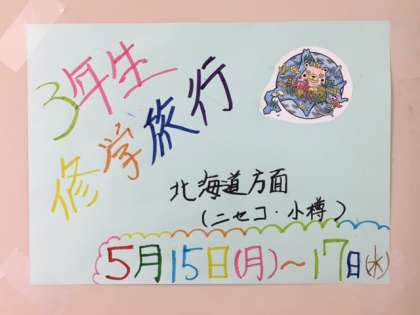 3年生
修学旅行
北海道方面
(ニセコ・小樽)
5月15日(月)~17日(水)